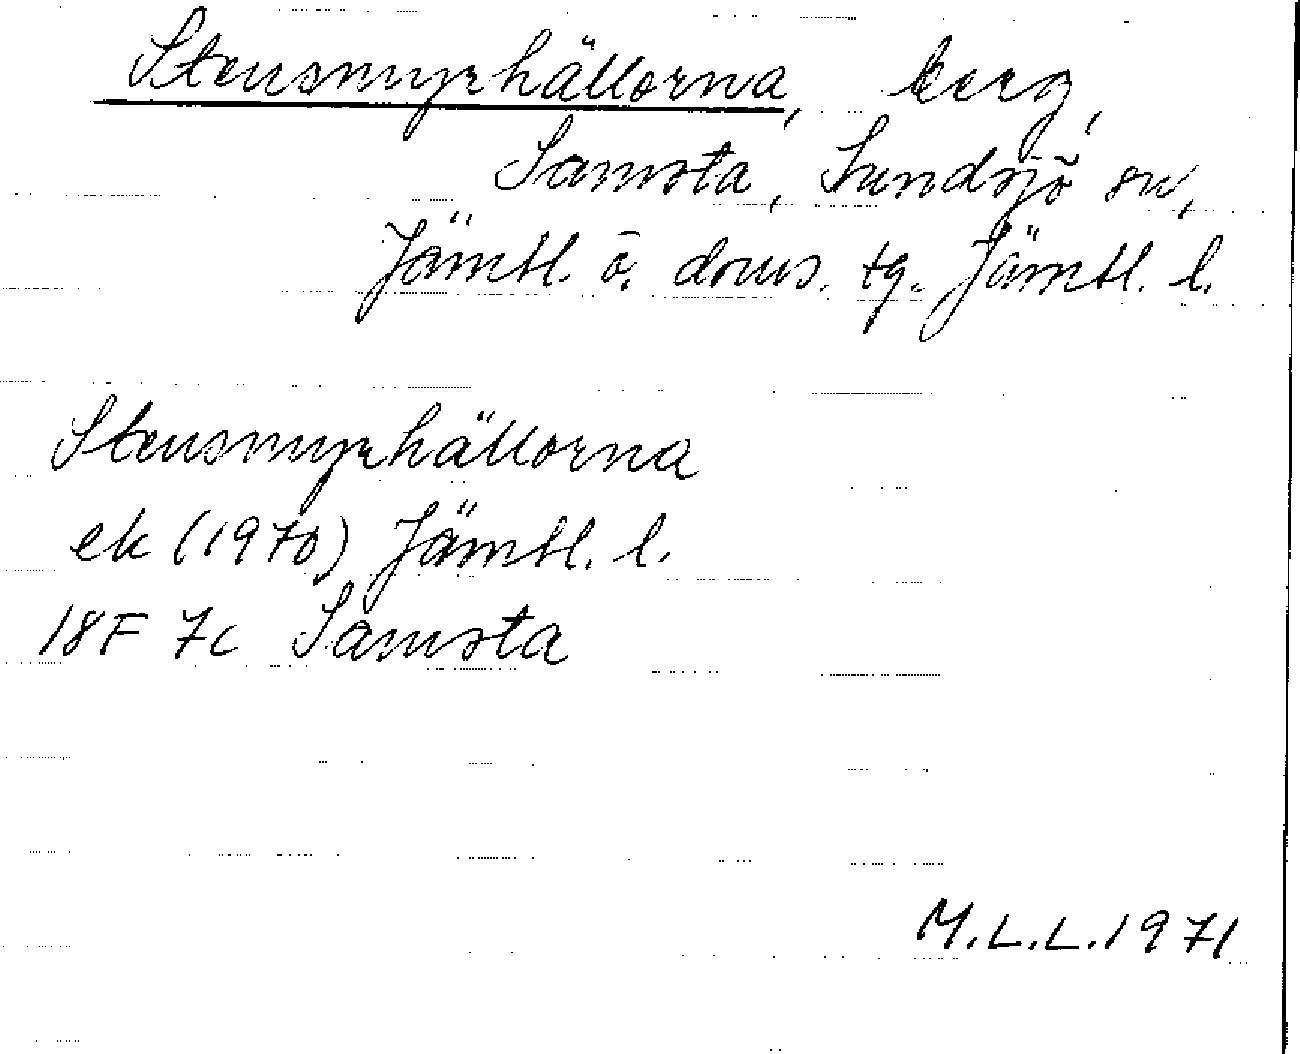 Stensmyrhällorna, berg,
Samsta, Sundsjö sn,
Jämtl. ö. doms. tg. Jämtl. l.
Stensmyrhällorna
ek (1970) Jämtl. l.
18F 7c Samsta
M.L.L. 1971